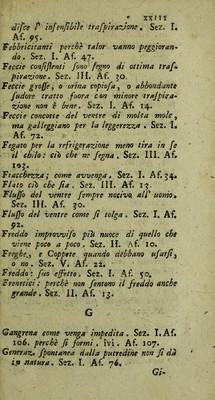 XXIII
disce l' insensibile traspirazione. Sez. I.
Af. 95.
Febbricitanti perchè talor vanno peggioran-
do. Sez. I. Af. 47.
Feccie consistenti sono segno di ottima tras-
pirazione. Sez. III. Af. 30.
Feccie grosse, o orina copiosa, o abbondante
sudore tratto fuora con minore traspira-
zione non è bene. Sez. I. Af. 14.
Feccie concotte del ventre di molta mole,
ma galleggiano per la leggerezza. Sez. I.
Af. 72.
Fegato per la refrigerazione meno tira in se
il chilo: ciò che ne segna. Sez. III. Af.
103.
Fiacchezza; come avvenga. Sez. I. Af. 34.
Flato ciò che sia. Sez. III. Af. 13.
Flusso del ventre sempre nocivo all' uomo.
Sez. III. Af. 30.
Flusso del ventre come si tolga. Sez. I. Af.
92.
Freddo improvviso più nuoce di quello che
viene poco a poco. Sez. II. Af. 10.
Freghe, e Coppete quando debbano usarsi,
o no. Sez. V. Af. 22.
Freddo: suo effetto. Sez. I. Af. 50.
Frenetici: perchè non sentono il freddo anche
grande. Sez. II. Af. 13.
G
Gangrena come venga impedita. Sez. I. Af.
106. perchè si formi. ivi. Af. 107.
Generaz. spontanea dalla putredine non si dà
in natura. Sez. I. Af. 76.
Gi-